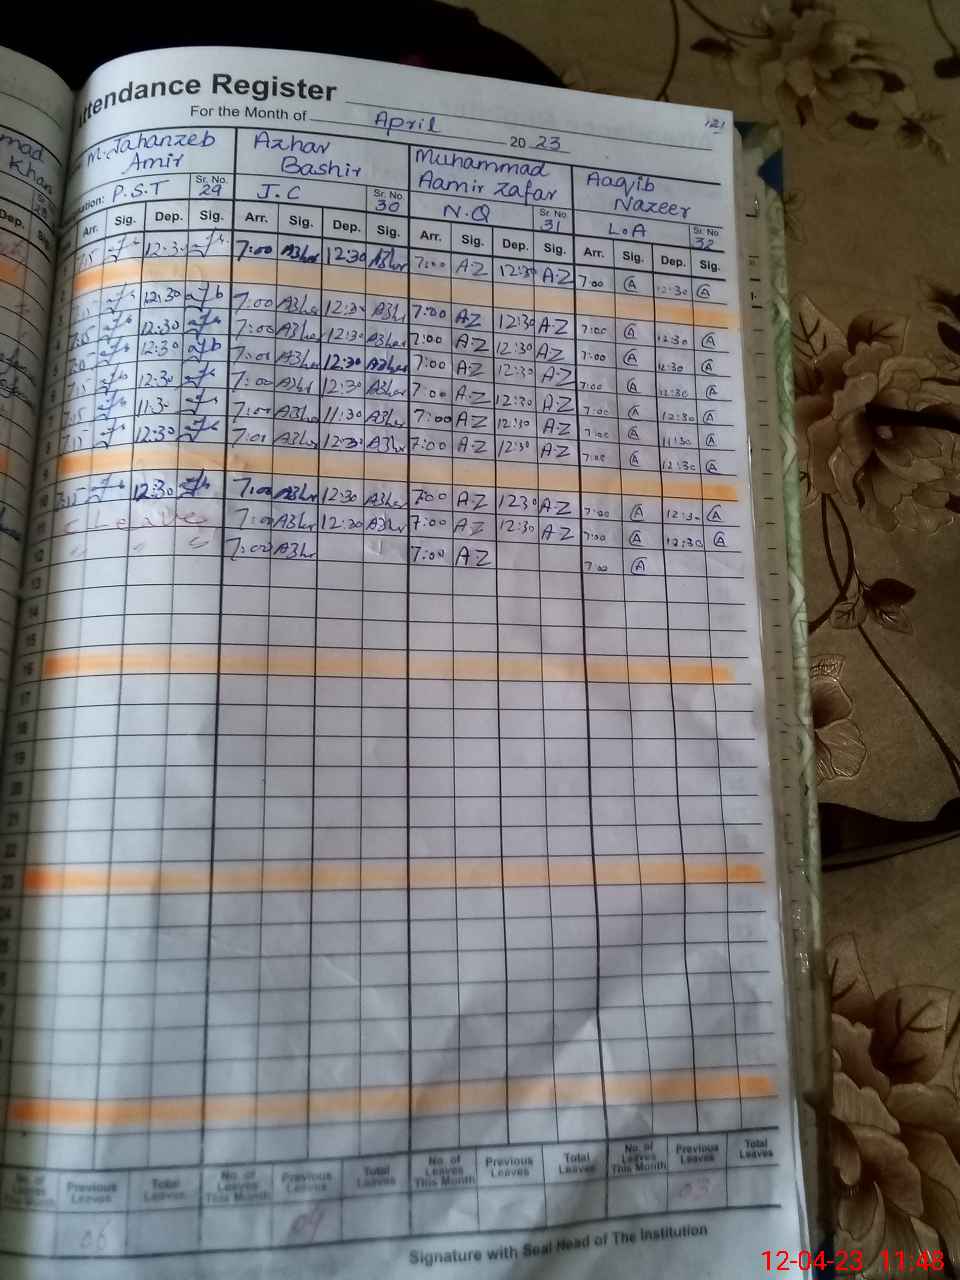 ttendance Register
For the Month of April 2023
121
mad
Khan
M. Jahanzeb
Amir
Azhar
Bashir
Muhammad
Aamir Zafar
Aaqib
Nazeer
nation: P.S.T Sr. No. 29
J.C Sr. No 30
N.Q Sr. No 31
L.O.A Sr. No 32
Dep. Sig. Sig. Dep. Sig. Arr. Sig. Dep. Sig. Arr. Sig. Dep. Sig. Arr. Sig. Dep. Sig.
12:30 7:00 Azhar 12:30 Azhar 7:00 A.Z 12:30 A.Z 7:00 A 12:30 A
12:30 7:00 Azhar 12:30 Azhar 7:00 A.Z 12:30 A.Z 7:00 A 12:30 A
7:15 12:30 7:00 Azhar 12:30 Azhar 7:00 A.Z 12:30 A.Z 7:00 A 12:30 A
12:30 7:00 Azhar 12:30 Azhar 7:00 A.Z 12:30 A.Z 7:00 A 12:30 A
7:15 12:30 7:00 Azhar 12:30 Azhar 7:00 A.Z 12:30 A.Z 7:00 A 12:30 A
7:15 11:30 7:00 Azhar 11:30 Azhar 7:00 A.Z 12:30 A.Z 7:00 A 11:30 A
8 7:15 12:30 7:00 Azhar 12:30 Azhar 7:00 A.Z 12:30 A.Z 7:00 A 12:30 A
9
10 12:30 7:00 Azhar 12:30 Azhar 7:00 A.Z 1230 A.Z 7:00 A 12:30 A
11 Leave 7:00 Azhar 12:30 Azhar 7:00 A.Z 12:30 A.Z 7:00 A 12:30 A
12 7:00 Azhar 7:00 A.Z 7:00 A
13
14
15
16
17
18
19
20
21
22
23
24
No. of Leaves This Month Previous Leaves Total Leaves No. of Leaves This Month Previous Leaves Total Leaves No. of Leaves This Month Previous Leaves Total Leaves No. of Leaves This Month Previous Leaves Total Leaves
06 04 03
Signature with Seal Head of The Institution
12-04-23 11:48